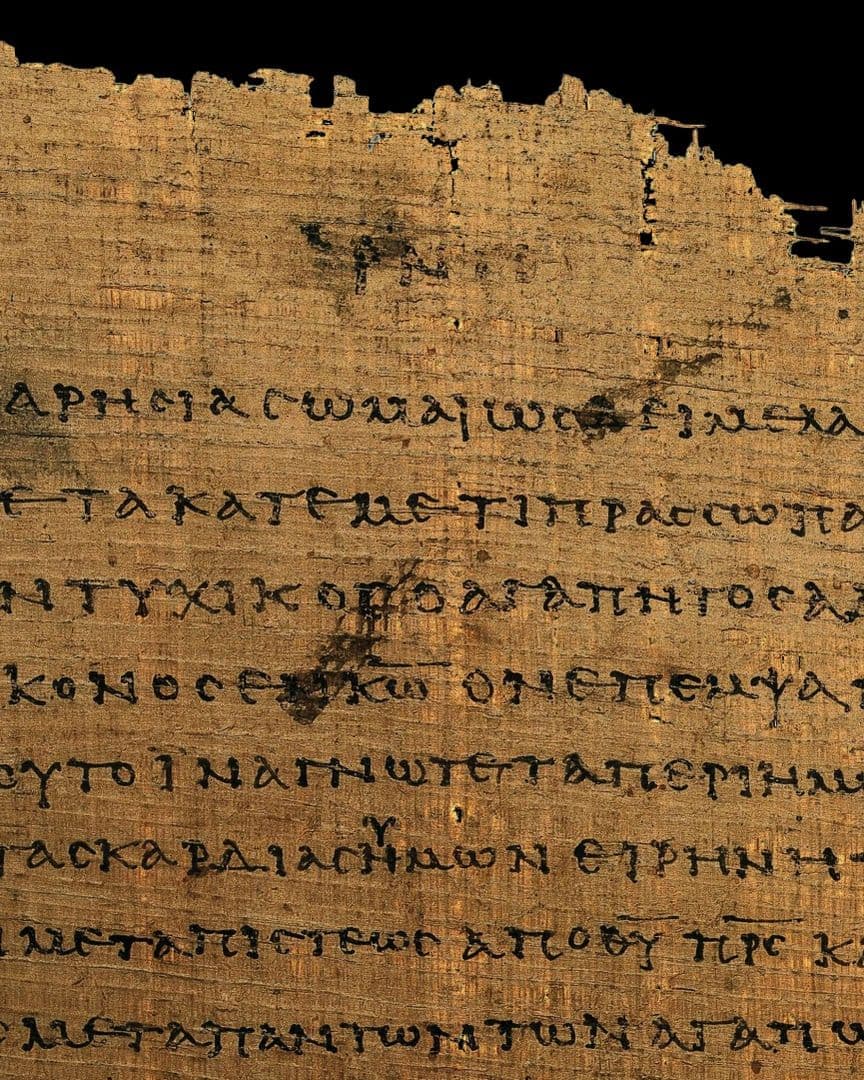 ΡΝ
ΑΡΗϹΙΑϹΩΜΑΙΩϹΔΕΙΜΕΛΑ
ΕΤΑΚΑΤΕΜΕΤΙΠΡΑϹϹΩΠΑ
ΝΤΥΧΙΚΟϹΟΑΓΑΠΗΤΟϹΑΔ
ΚΟΝΟϹΕΝΚ̅Ω̅ ΟΝΕΠΕΜΨΑ
ΟΥΤΟΙΝΑΓΝΩΤΕΤΑΠΕΡΙΗΜ
Υ
ΤΑϹΚΑΡΔΙΑϹΗΜΩΝ ΕΙΡΗΝΗ
ΙΜΕΤΑΠΙϹΤΕΩϹ ΑΠΟΘ̅Υ̅ Π̅Ρ̅Ϲ̅ ΚΑ
ϹΜΕΤΑΠΑΝΤΩΝΤΩΝΑΓΑΠΩ